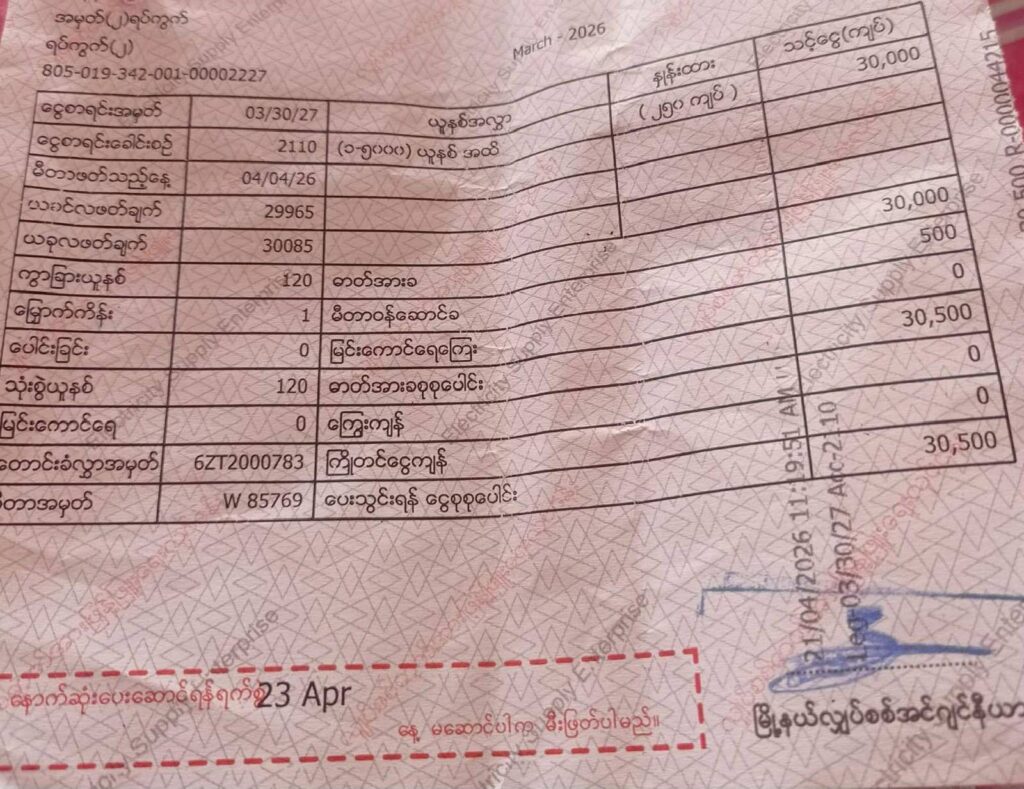 အမှတ်(၂)ရပ်ကွက်
ရပ်ကွက်(၂)
805-019-342-001-00002227
March - 2026
ငွေစာရင်းအမှတ် 03/30/27 ယူနစ်အလွှာ နှုန်းထား သင့်ငွေ(ကျပ်)
ငွေစာရင်းခေါင်းစဉ် 2110 (၁-၅၀၀၀) ယူနစ် အထိ (၂၅၀ ကျပ်) 30,000
မီတာဖတ်သည့်နေ့ 04/04/26
ယခင်လဖတ်ချက် 29965
ယခုလဖတ်ချက် 30085
ကွာခြားယူနစ် 120 ဓာတ်အားခ 30,000
မြှောက်ကိန်း 1 မီတာဝန်ဆောင်ခ 500
ပေါင်းခြင်း 0 မြင်းကောင်ရေကြေး 0
သုံးစွဲယူနစ် 120 ဓာတ်အားခစုစုပေါင်း 30,500
မြင်းကောင်ရေ 0 ကြွေးကျန် 0
တောင်းခံလွှာအမှတ် 6ZT2000783 ကြိုတင်ငွေကျန် 0
မီတာအမှတ် W 85769 ပေးသွင်းရန် ငွေစုစုပေါင်း 30,500
နောက်ဆုံးပေးဆောင်ရန်ရက်စွဲ 23 Apr
နေ့ မဆောင်ပါက မီးဖြတ်ပါမည်။
21/04/2026 11:19:51 AM
03/30/27 Ac-2110
မြို့နယ်လျှပ်စစ်အင်ဂျင်နီယာ
500 R-0000044215
Electricity Supply Enterprise